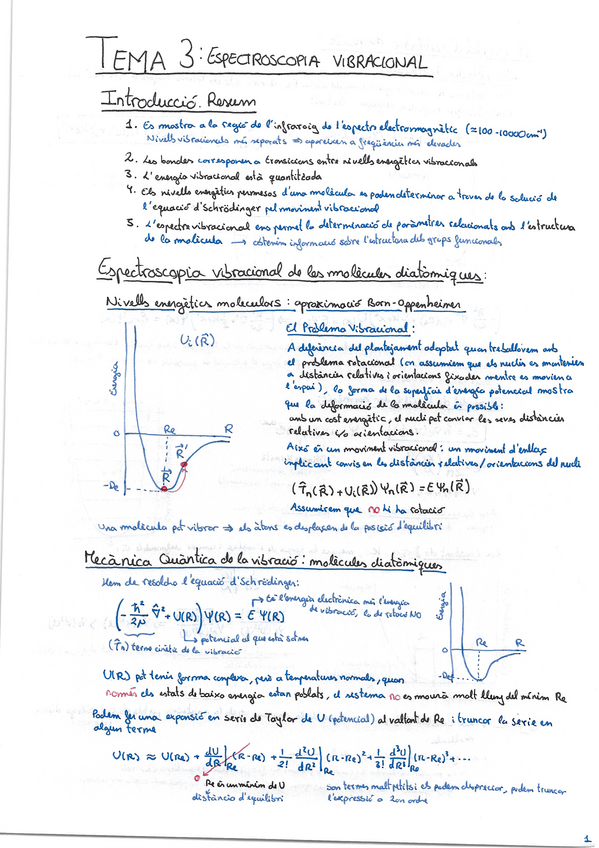 TEMA 3: ESPECTROSCOPIA VIBRACIONAL
Introducció. Resum
1. Es mostra a la regió de l'infraroig de l'espectre electromagnètic (≈100-10000cm⁻¹)
Nivells vibracionals més separats ⇒ apareixen a freqüències més elevades
2. Les bandes corresponen a transicions entre nivells energètics vibracionals
3. L'energia vibracional està quantitzada
4. Els nivells energètics permesos d'una molècula es poden determinar a traves de la solució de
l'equació d'Schrödinger pel moviment vibracional
5. L'espectre vibracional ens permet la determinació de paràmetres relacionats amb l'estructura
de la molècula → obtenim informació sobre l'estructura dels grups funcionals
Espectroscopia vibracional de les molècules diatòmiques:
Nivells energètics moleculars: aproximació Born-Oppenheimer
Energia
Ui(R⃗)
0
Re
R
R⃗'
R⃗
-De
El Problema Vibracional:
A diferència del plantejament adoptat quan treballàvem amb
el problema rotacional (on assumíem que els nuclis es mantenien
a distàncies relatives i orientacions fixades mentre es movien a
l'espai), la forma de la superfície d'energia potencial mostra
que la deformació de la molècula és possible:
amb un cost energètic, el nucli pot canviar les seves distàncies
relatives i/o orientacions.
Això és un moviment vibracional: un moviment d'enllaç
implicant canvis en les distàncies relatives/orientacions del nucli
(T̂n(R⃗) + Ui(R⃗)) Ψn(R⃗) = E Ψn(R⃗)
Assumirem que no hi ha rotació
Una molècula pot vibrar ⇒ els àtoms es desplacen de la posició d'equilibri
Mecànica Quàntica de la vibració: molècules diatòmiques
Hem de resoldre l'equació d'Schrödinger:
(-ħ²/2μ ∇̂² + U(R)) Ψ(R) = E Ψ(R)
→ És l'energia electrònica més l'energia
de vibració, la de rotació NO
↳ potencial al que està sotmès
(T̂n) terme cinètic de la vibració
Energia
Re
R
-De
U(R) pot tenir forma complexa, però a temperatures normals, quan
només els estats de baixa energia estan poblats, el sistema no es mourà molt lluny del mínim Re
Podem fer una expansió en serie de Taylor de U (potencial) al voltant de Re i truncar la sèrie en
algun terme
U(R) ≈ U(Re) + dU/dR|Re (R-Re) + 1/2! d²U/dR²|Re (R-Re)² + 1/3! d³U/dR³|Re (R-Re)³ + ...
0
Re és un mínim de U
distància d'equilibri
són termes molt petits i els podem despreciar, podem truncar
l'expressió a 2on ordre
1